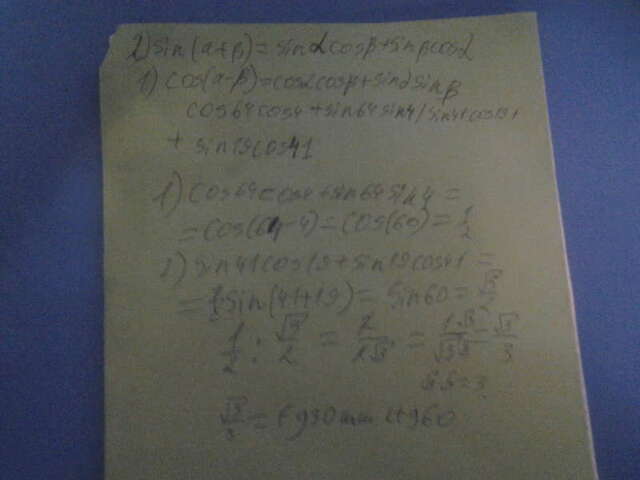 2) sin(α+β)=sinα cosβ+sinβ cosα
1) cos(α-β)=cosα cosβ+sinα sinβ
cos64cos4+sin64sin4/sin41cos19+
+ sin19cos41
1) cos64cos4+sin64sin4=
=cos(64-4)=cos(60)=1/2
2) sin41cos19+sin19cos41=
=sin(41+19)=sin60=√3/2
1/2 : √3/2 = 2/2√3 = 1√3/√3√3 = √3/3
√3√3=3
√3/3 =